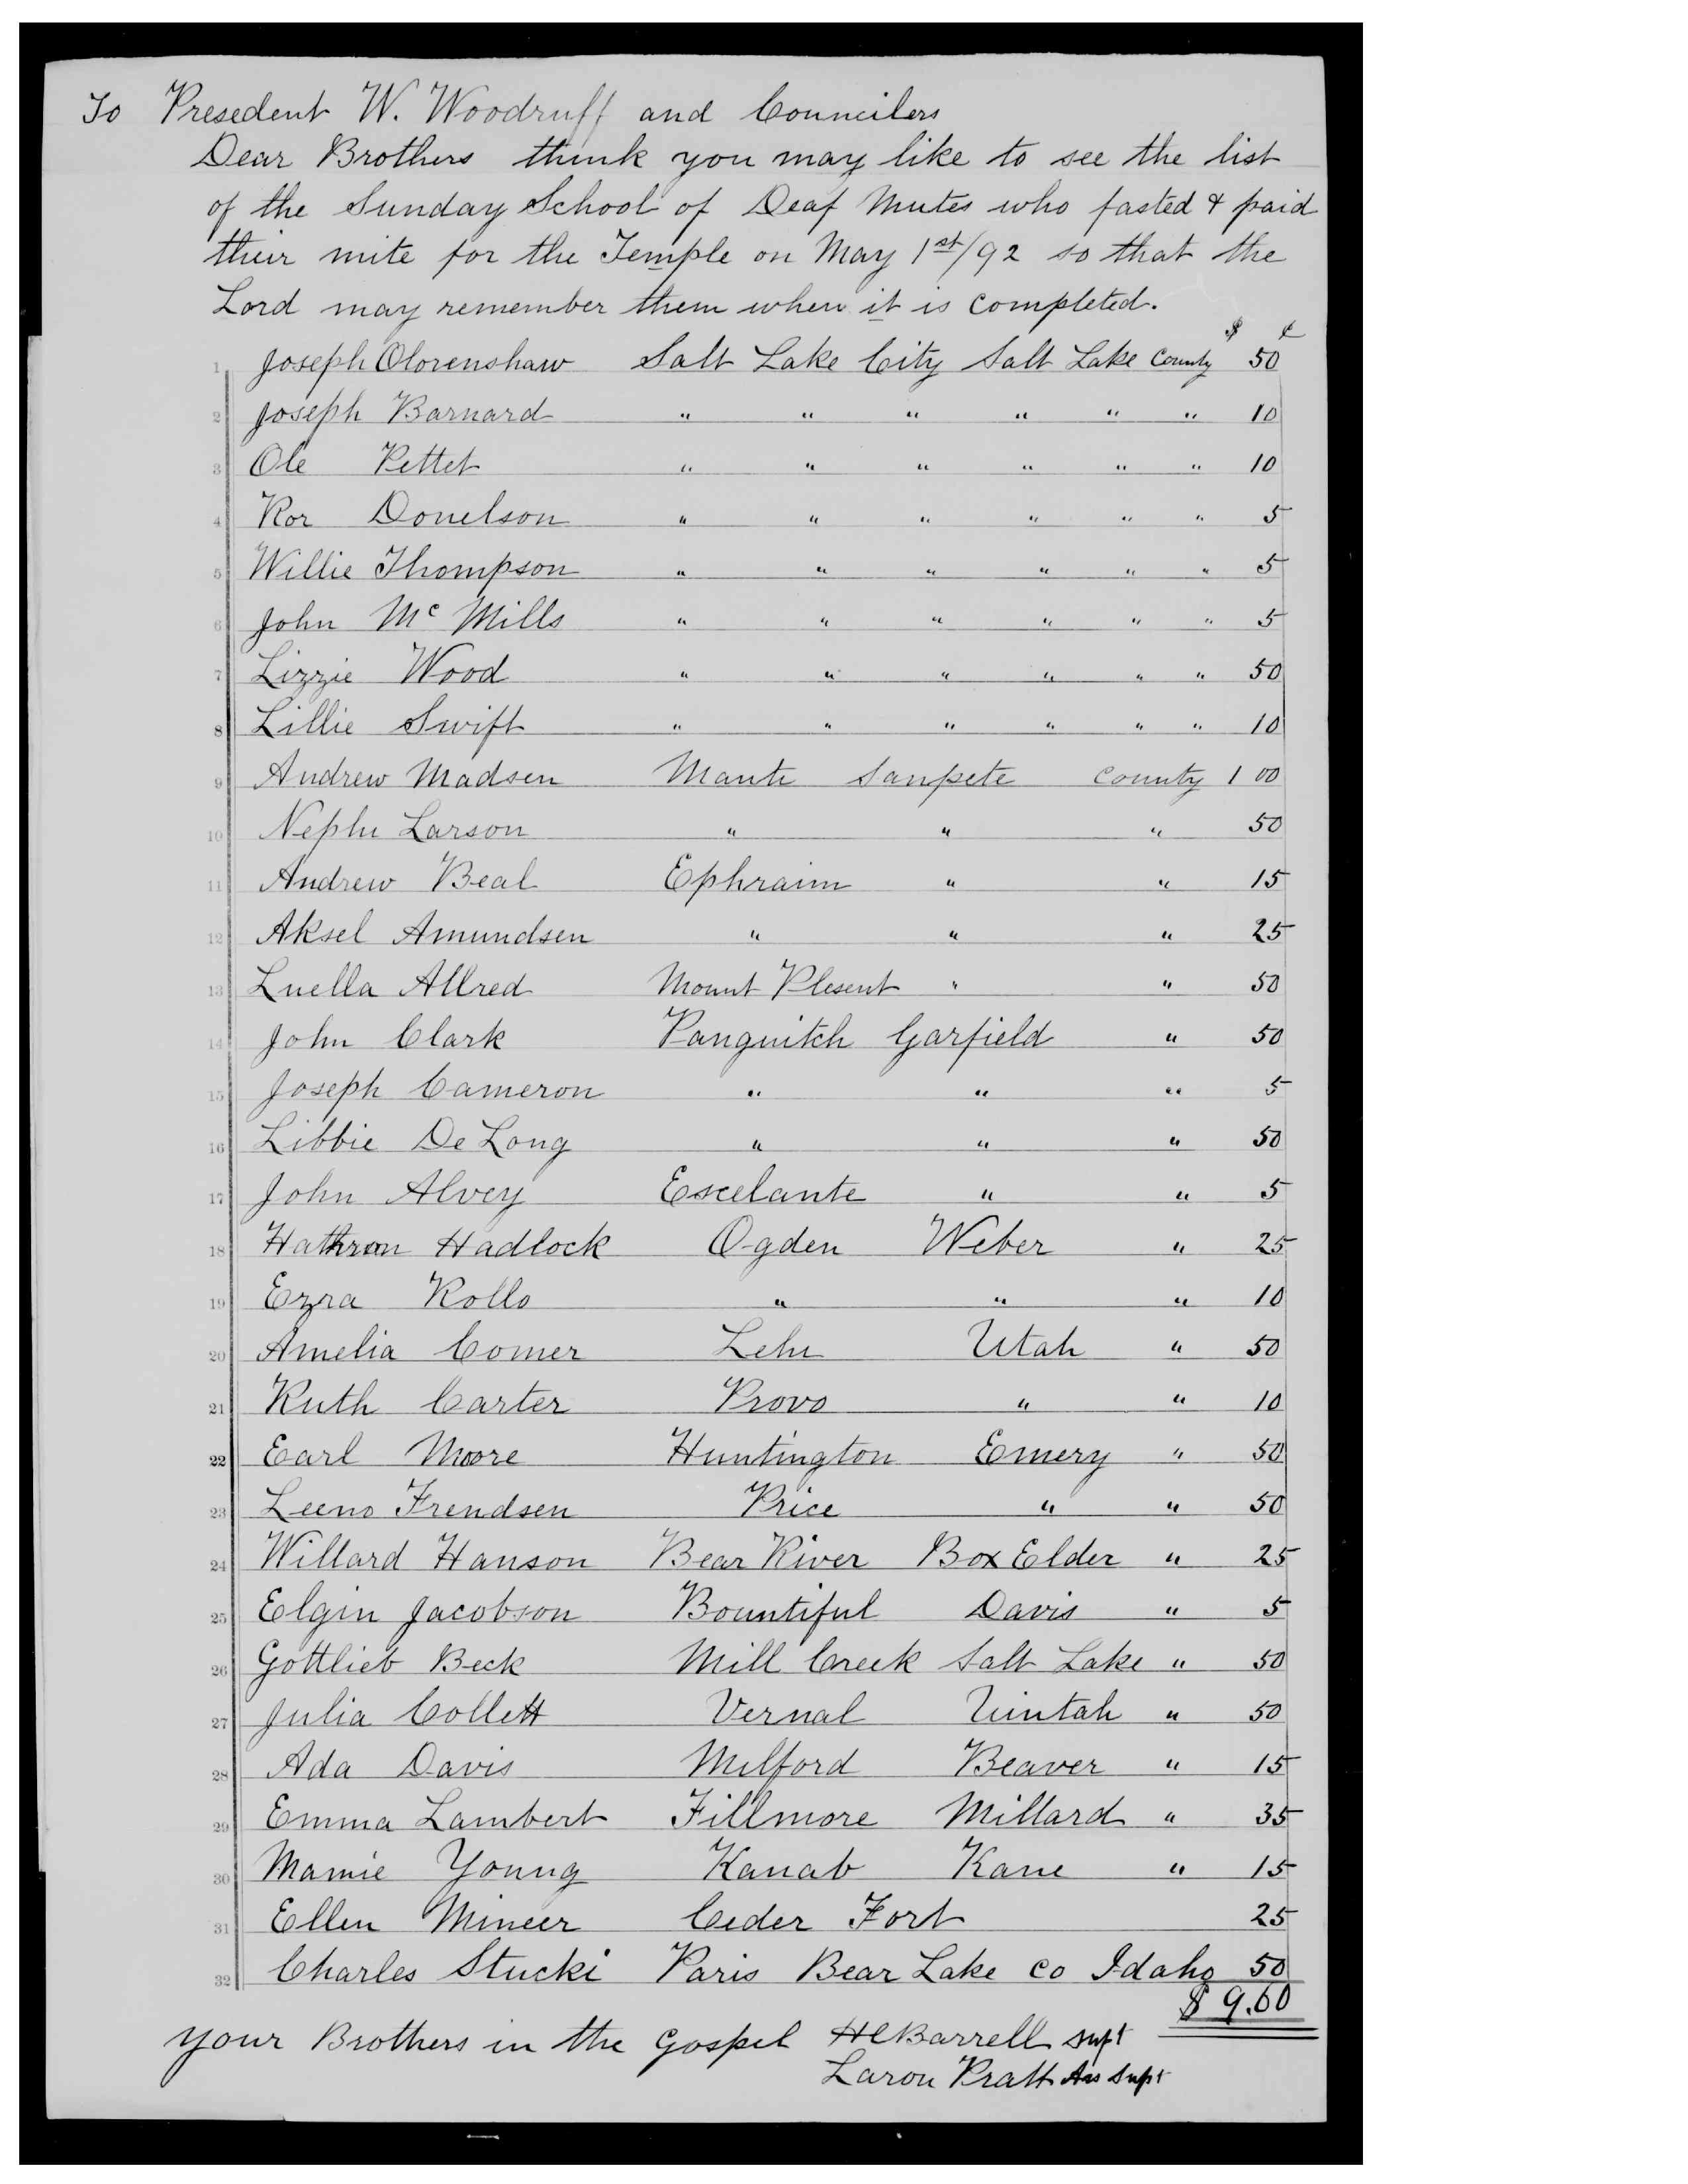 To Presedent W. Woodruff and Councilers
Dear Brothers think you may like to see the list
of the Sunday School of Deaf Mutes who fasted & paid
their mite for the Temple on May 1st/92 so that the
Lord may remember them when it is completed.
$ ¢
1 Joseph Olorenshaw Salt Lake City Salt Lake County 50
2 Joseph Barnard " " " " " " 10
3 Ole Pettet " " " " " " 10
4 Ror Donelson " " " " " " 5
5 Willie Thompson " " " " " " 5
6 John Mc Mills " " " " " " 5
7 Lizzie Wood " " " " " " 50
8 Lillie Swift " " " " " " 10
9 Andrew Madsen Manti Sanpete County 1 00
10 Nephi Larson " " " 50
11 Andrew Beal Ephraim " " 15
12 Aksel Amundsen " " " 25
13 Luella Allred Mount Plesent " " 50
14 John Clark Panguitch Garfield " 50
15 Joseph Cameron " " " 5
16 Libbie De Long " " " 50
17 John Alvey Escelante " " 5
18 Hathron Hadlock Ogden Weber " 25
19 Ezra Rollo " " " 10
20 Amelia Comer Lehi Utah " 50
21 Ruth Carter Provo " " 10
22 Earl Moore Huntington Emery " 50
23 Leeno Frendsen Price " " 50
24 Willard Hanson Bear River Box Elder " 25
25 Elgin Jacobson Bountiful Davis " 5
26 Gottlieb Beck Mill Creek Salt Lake " 50
27 Julia Collett Vernal Uintah " 50
28 Ada Davis Milford Beaver " 15
29 Emma Lambert Fillmore Millard " 35
30 Mamie Young Kanab Kane " 15
31 Ellen Mineer Ceder Fort 25
32 Charles Stucki Paris Bear Lake Co Idaho 50
$ 9.60
your Brothers in the Gospel H C Barrell supt
Laron Pratt Ass Supt